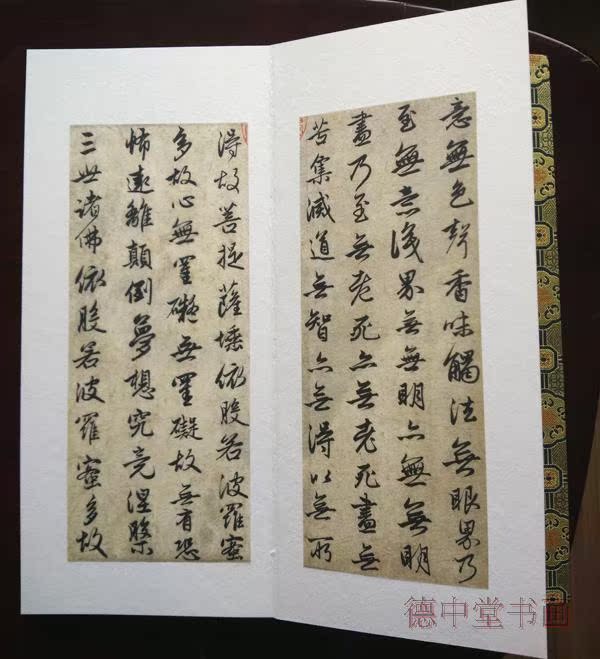 意無色聲香味觸法無眼界乃
至無意識界無無明亦無無明
盡乃至無老死亦無老死盡無
苦集滅道無智亦無得以無所
得故菩提薩埵依般若波羅蜜
多故心無罣礙無罣礙故無有恐
怖遠離顛倒夢想究竟涅槃
三世諸佛依般若波羅蜜多故
德中堂书画